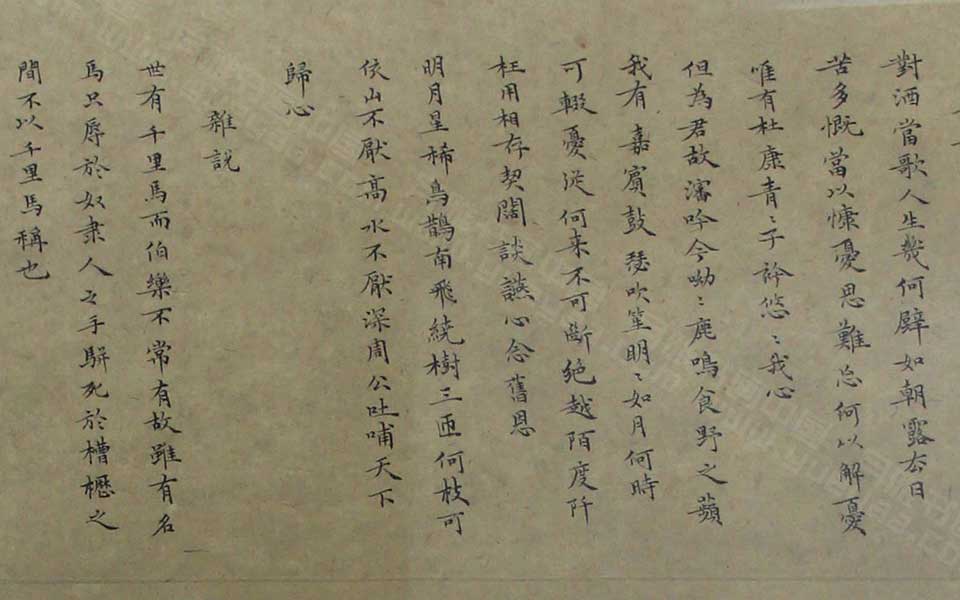 對酒當歌人生幾何譬如朝露去日
苦多慨當以慷憂思難忘何以解憂
唯有杜康青〻子衿悠〻我心
但為君故瀋吟今呦〻鹿鳴食野之蘋
我有嘉賓鼓瑟吹笙明〻如月何時
可輟憂從何来不可斷絕越陌度阡
枉用相存契闊談讌心念舊恩
明月星稀鳥鵲南飛繞樹三匝何枝可
依山不厭高水不厭深周公吐哺天下
歸心
雜說
世有千里馬而伯樂不常有故雖有名
馬只辱於奴隶人之手駢死於槽櫪之
間不以千里馬稱也